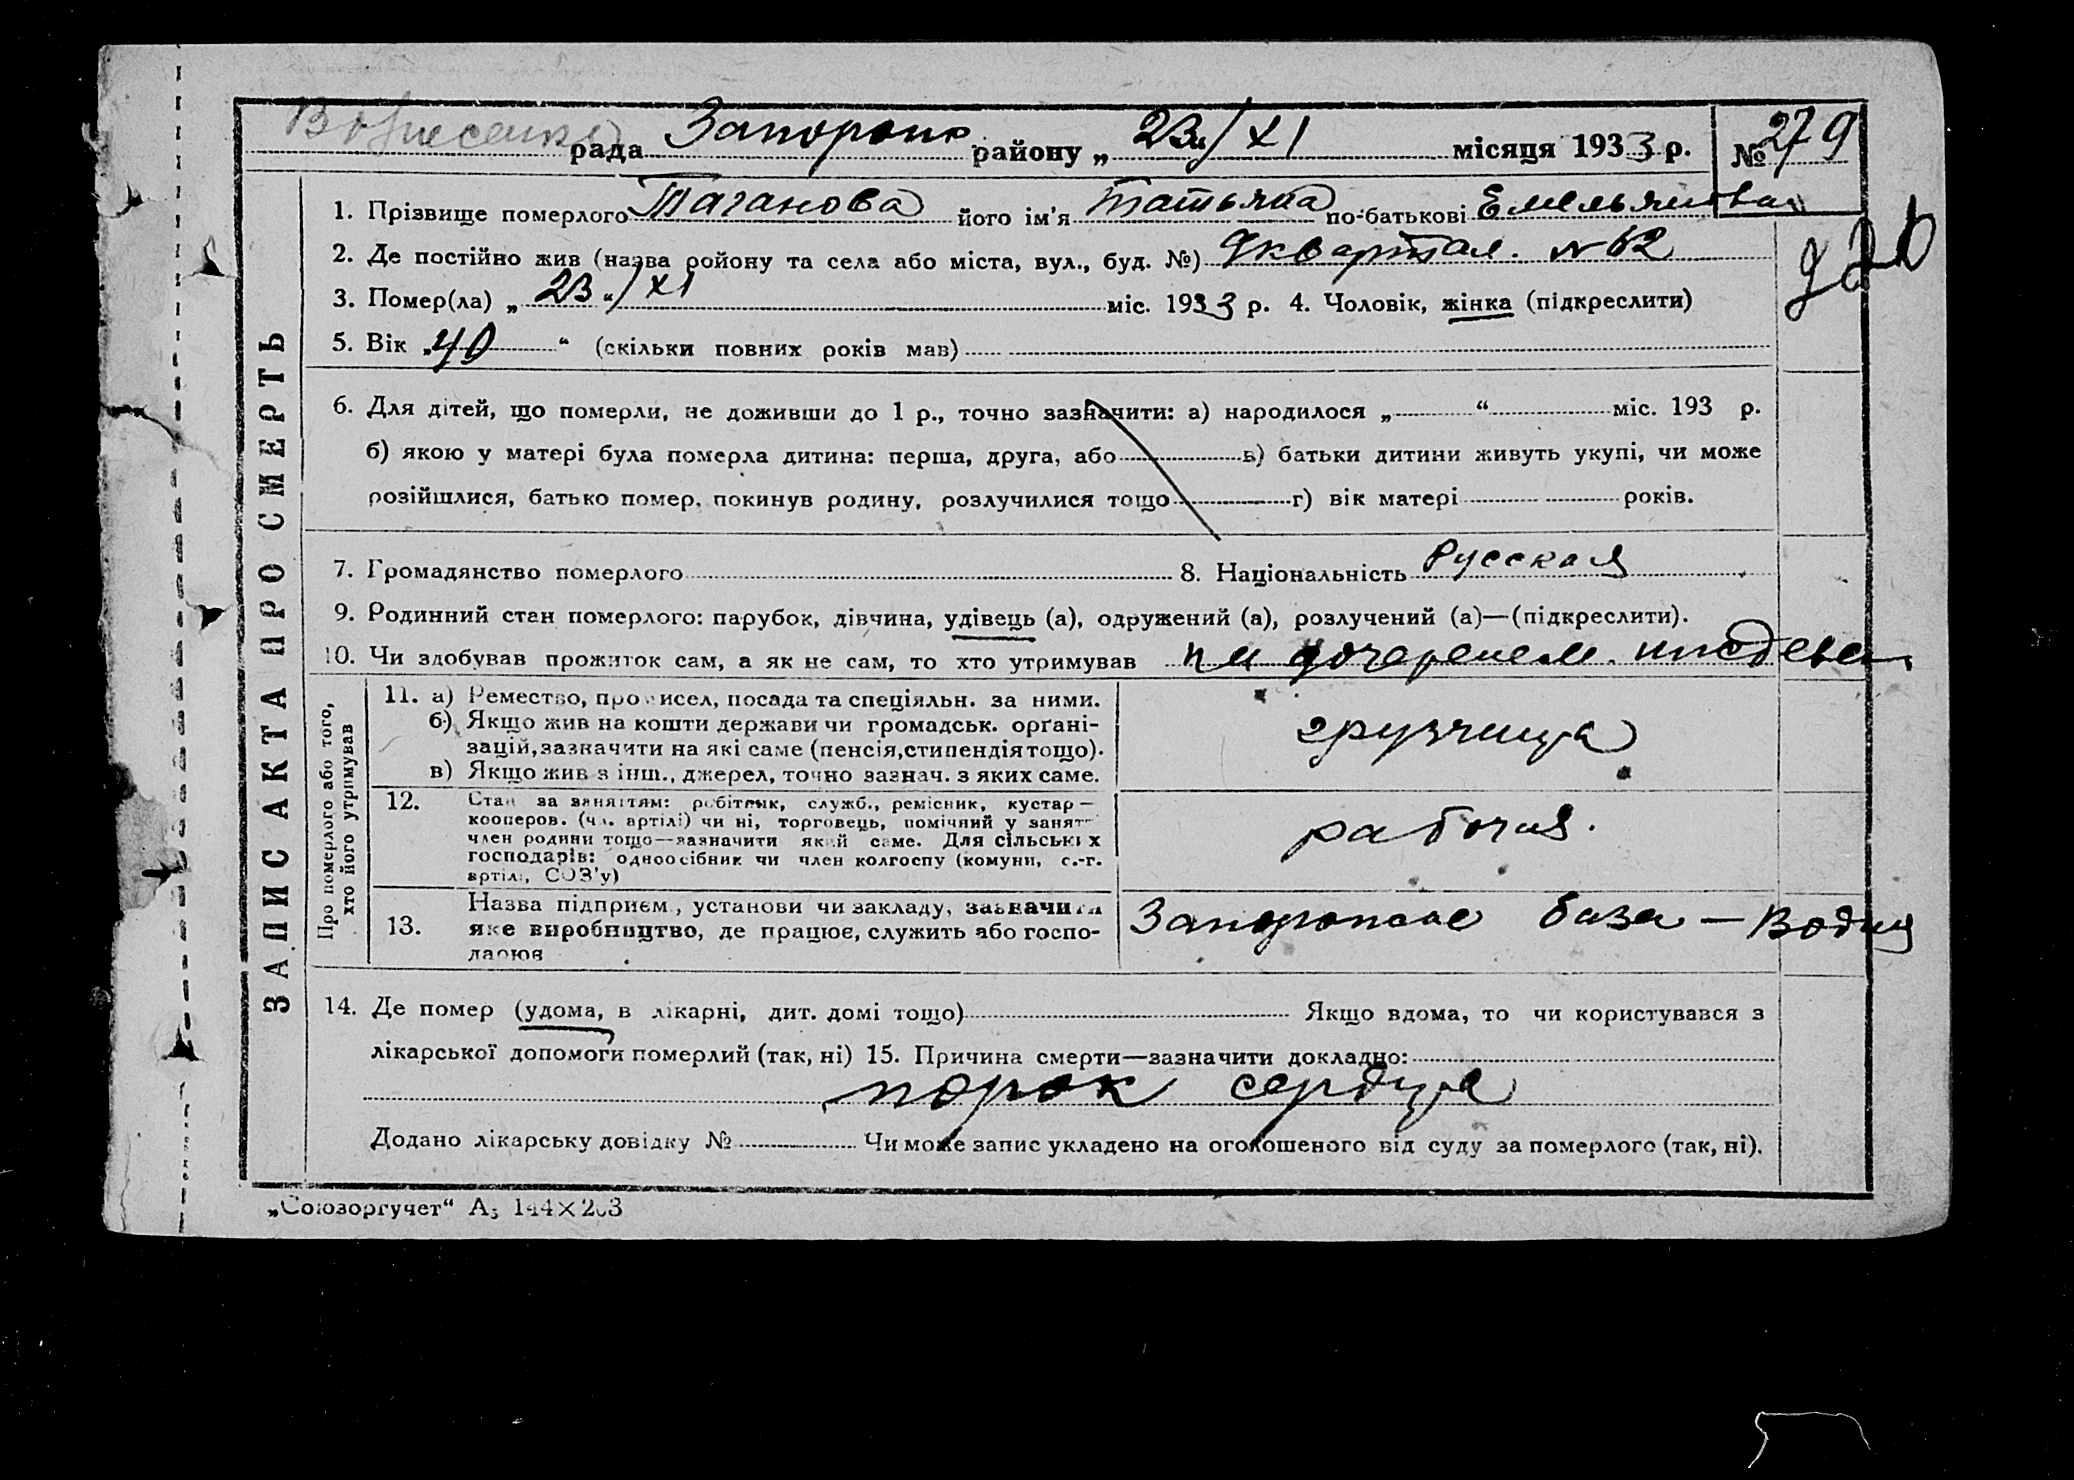 Вознесенка рада Запорож району „ 23 " / XI місяця 1933 р. № 279
1. Прізвище померлого Таганова його ім'я Татьяна по-батькові Емельяновна
2. Де постійно жив (назва ройону та села або міста, вул., буд. №) квартал. № 62
3. Помер(ла) „ 23 " / XI міс. 1933 р. 4. Чоловік, жінка (підкреслити)
5. Вік „ 40 “ (скільки повних років мав)
6. Для дітей, що померли, не доживши до 1 р., точно зазначити: а) народилося „ “ міс. 193 р.
б) якою у матері була померла дитина: перша, друга, або в) батьки дитини живуть укупі, чи може
розійшлися, батько помер, покинув родину, розлучилися тощо г) вік матері років.
7. Громадянство померлого 8. Національність Русская
9. Родинний стан померлого: парубок, дівчина, удівець (а), одружений (а), розлучений (а)—(підкреслити).
10. Чи здобував прожиток сам, а як не сам, то хто утримував на
ЗАПИС АКТА ПРО СМЕРТЬ
Про померлого або того,
хто його утримував
11. а) Ремество, промисел, посада та спеціяльн. за ними.
б) Якщо жив на кошти держави чи громадськ. орґані-
зацій, зазначити на які саме (пенсія, стипендія тощо).
в) Якщо жив з інш., джерел, точно зазнач. з яких саме.
грузчица
12. Стан за заняттям: робітник, служб., ремісник, кустар —
кооперов. (чл. артілі) чи ні, торговець, помічний у занятт
член родини тощо—зазначити який саме. Для сільських
господарів: одноосібник чи член колгоспу (комуни, с.-г.
артілі, СОЗ'у)
рабочая.
13. Назва підприєм., установи чи закладу, зазначити
яке виробництво, де працює, служить або госпо-
дарює
база —
14. Де помер (удома, в лікарні, дит. домі тощо) Якщо вдома, то чи користувався з
лікарської допомоги померлий (так, ні) 15. Причина смерти—зазначити докладно:
порок сердца
Додано лікарську довідку № Чи може запис укладено на оголошеного від суду за померлого (так, ні).
„Союзоргучет“ А5 144×203